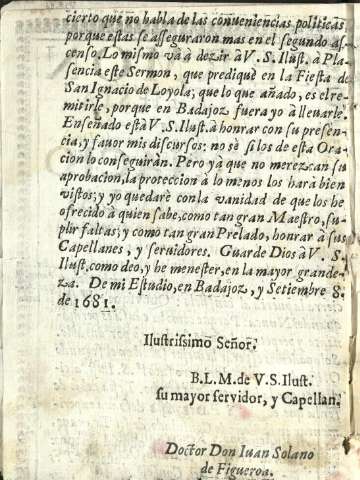 cierto que no habla de las conueniencias politicas
porque estas se asseguraron mas en el segundo as-
censo. Lo mismo và à dezir à V. S. Ilust. à Pla-
sencia este Sermon, que prediquè en la Fiesta de
San Ignacio de Loyola; que lo que añado, es el re-
mitirle, porque en Badajoz fuera yo à lleuarle.
Enseñado està V. S. Ilust. à honrar con su presen-
cia, y fauor mis discursos: no sè si los de esta Ora-
cion lo conseguiràn. Pero yà que no merezcan su
aprobacion, la proteccion à lo menos los harà bien
vistos; y yo quedarè con la vanidad de que los he
ofrecido à quien sabe, como tan gran Maestro, su-
plir faltas; y como tan gran Prelado, honrar à sus
Capellanes, y seruidores. Guarde Dios à V. S.
Ilust. como deo, y he menester, en la mayor grande-
za. De mi Estudio, en Badajoz, y Setiembre 8.
de 1681.
Ilustrissimo Señor.
B. L. M. de V. S. Ilust.
su mayor servidor, y Capellan.
Doctor Don Iuan Solano
de Figueroa.